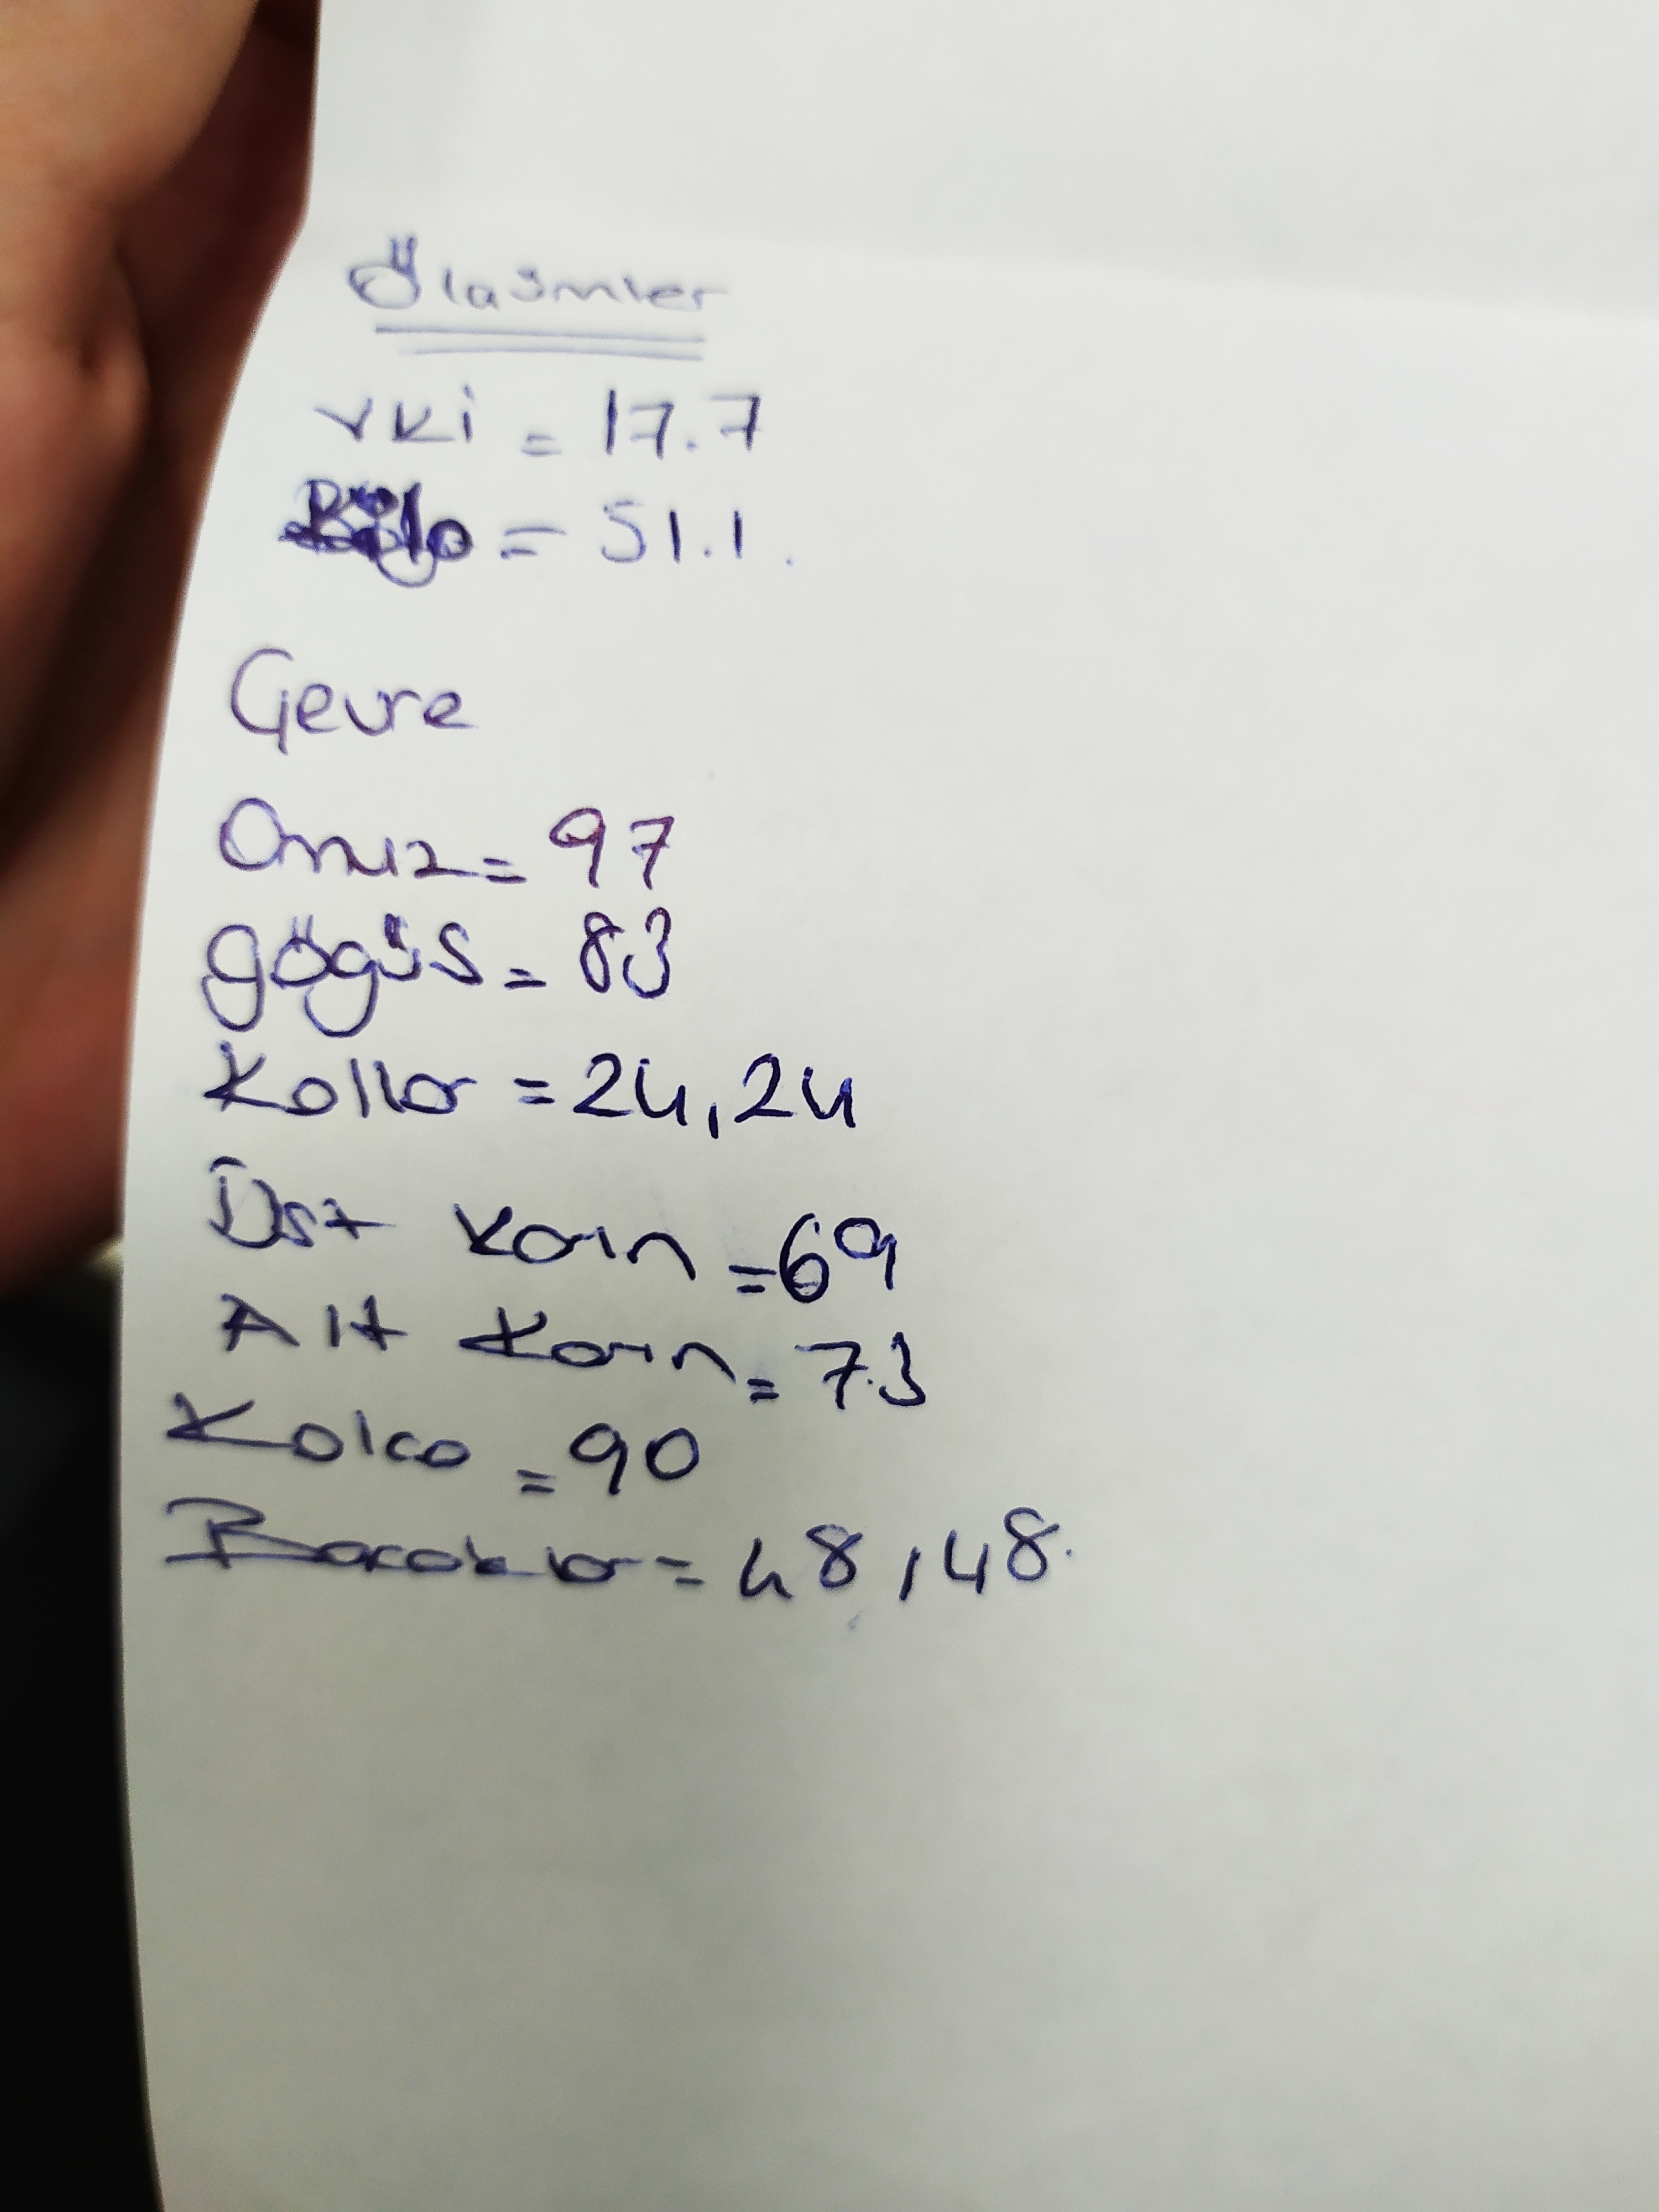 Ölasmler
VKİ = 17.7
Kilo = 51.1.
Çevre
Omuz = 97
göğüs = 83
Kollar = 24,24
Üst Karın = 69
Alt Karın = 73
Kalça = 90
Bacaklar = 48,48.